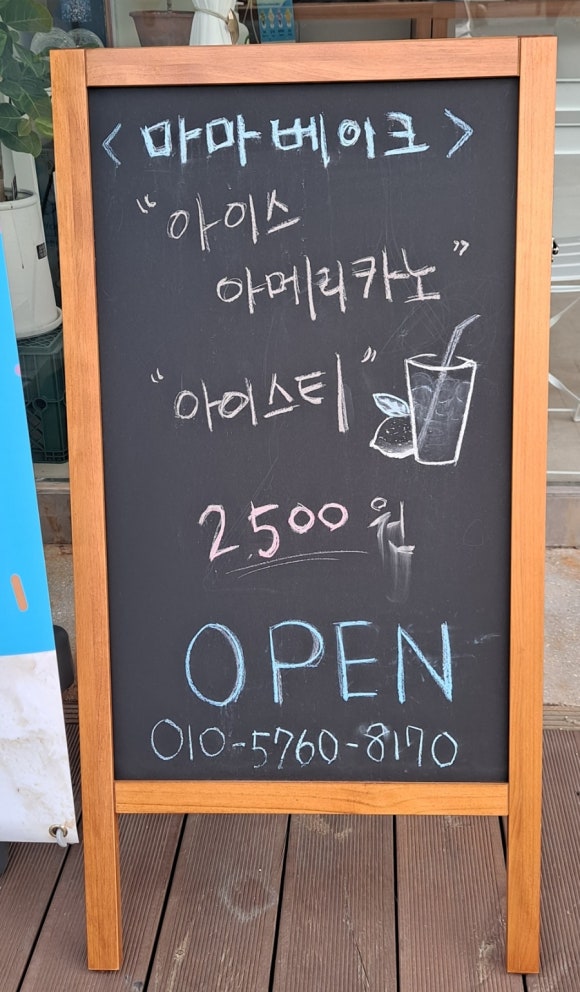 < 마마베이크 >
"아이스
아메리카노"
"아이스티"
2500원
OPEN
010-5760-8170